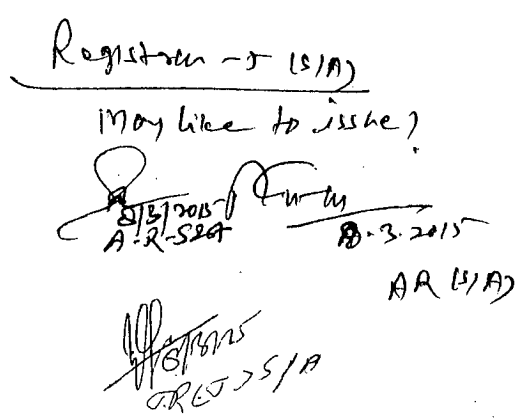 Registrar - J (S/A)
May like to issue?
8/3/2015
A-R-S&A
8.3.2015
AR (S/A)
JR(J)S/A